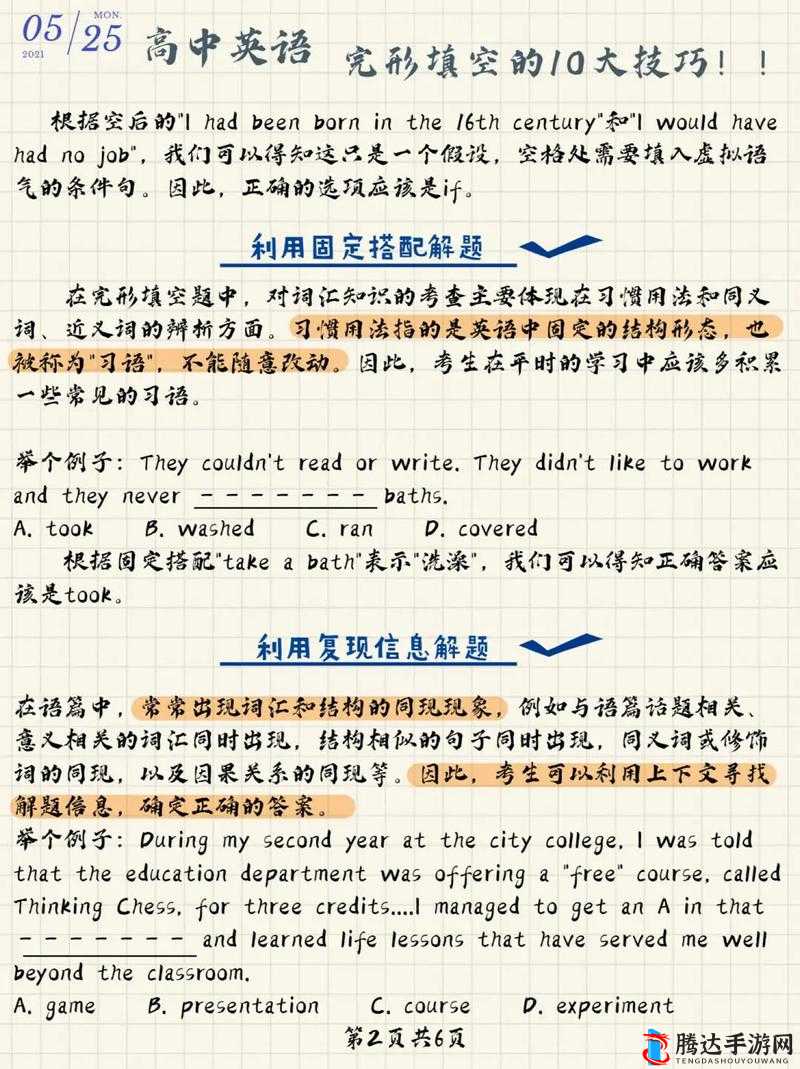 05/25
MON.
2021
高中英语 完形填空的10大技巧！！
根据空后的"I had been born in the 16th century"和"I would have
had no job"，我们可以得知这只是一个假设，空格处需要填入虚拟语
气的条件句。因此，正确的选项应该是if。
利用固定搭配解题
在完形填空题中，对词汇知识的考查主要体现在习惯用法和同义
词、近义词的辨析方面。习惯用法指的是英语中固定的结构形态，也
被称为"习语"，不能随意改动。因此，考生在平时的学习中应该多积累
一些常见的习语。
举个例子：They couldn't read or write. They didn't like to work
and they never ------- baths.
A. took B. washed C. ran D. covered
根据固定搭配"take a bath"表示"洗澡"，我们可以得知正确答案应
该是took。
利用复现信息解题
在语篇中，常常出现词汇和结构的同现现象，例如与语篇话题相关、
意义相关的词汇同时出现，结构相似的句子同时出现，同义词或修饰
词的同现，以及因果关系的同现等。因此，考生可以利用上下文寻找
解题信息，确定正确的答案。
举个例子：During my second year at the city college, I was told
that the education department was offering a "free" course, called
Thinking Chess, for three credits....I managed to get an A in that
------- and learned life lessons that have served me well
beyond the classroom.
A. game B. presentation C. course D. experiment
第2页 共6页
腾达手游网
TENGDASHOUYOUWANG